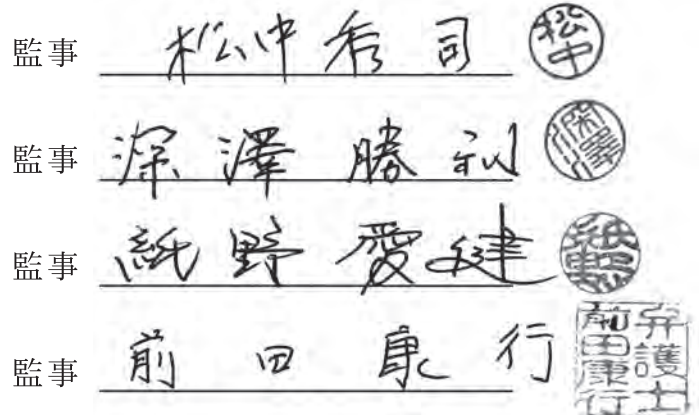 監事 松中秀司 松中
監事 深澤勝利 深澤
監事 紙野愛健 紙野
監事 前田康行 弁護士前田康行